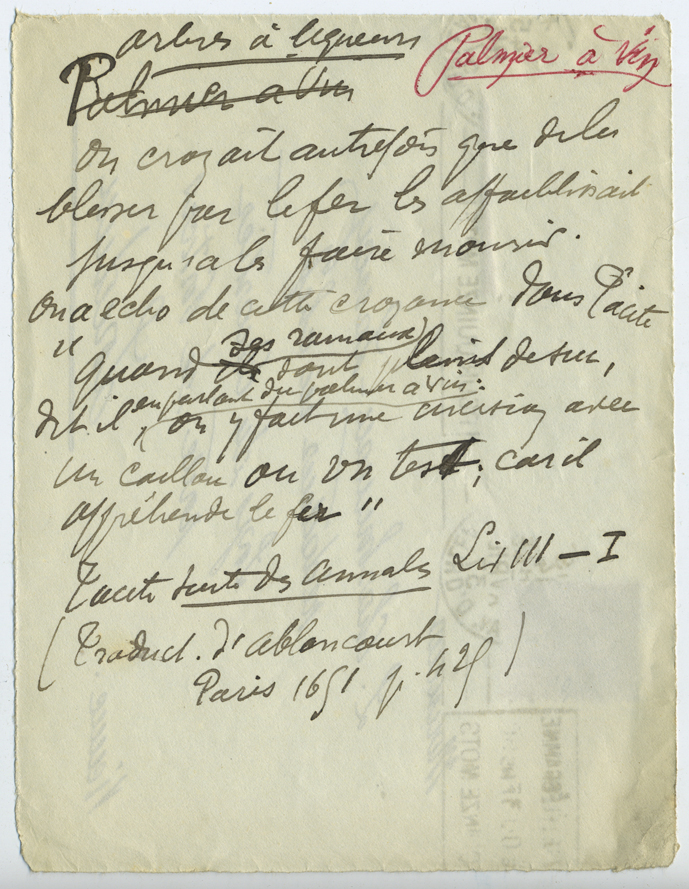 arbres à liqueurs
Palmier à Vin
Palmier à Vin
On croyait autrefois que de les
blesser par le fer les affaiblissait
jusqu'a les faire mourir.
on a echo de cette croyance dans Tacite
"Quand ses rameaux sont pleins de suc,
dit-il, en parlant du palmier à vin:
on y fait une incision avec
un caillou ou un test; car il
appréhende le fer"
Tacite suite des Annales Liv III — I
(Traduct. d'Ablancourt
Paris 1651 p. 425)